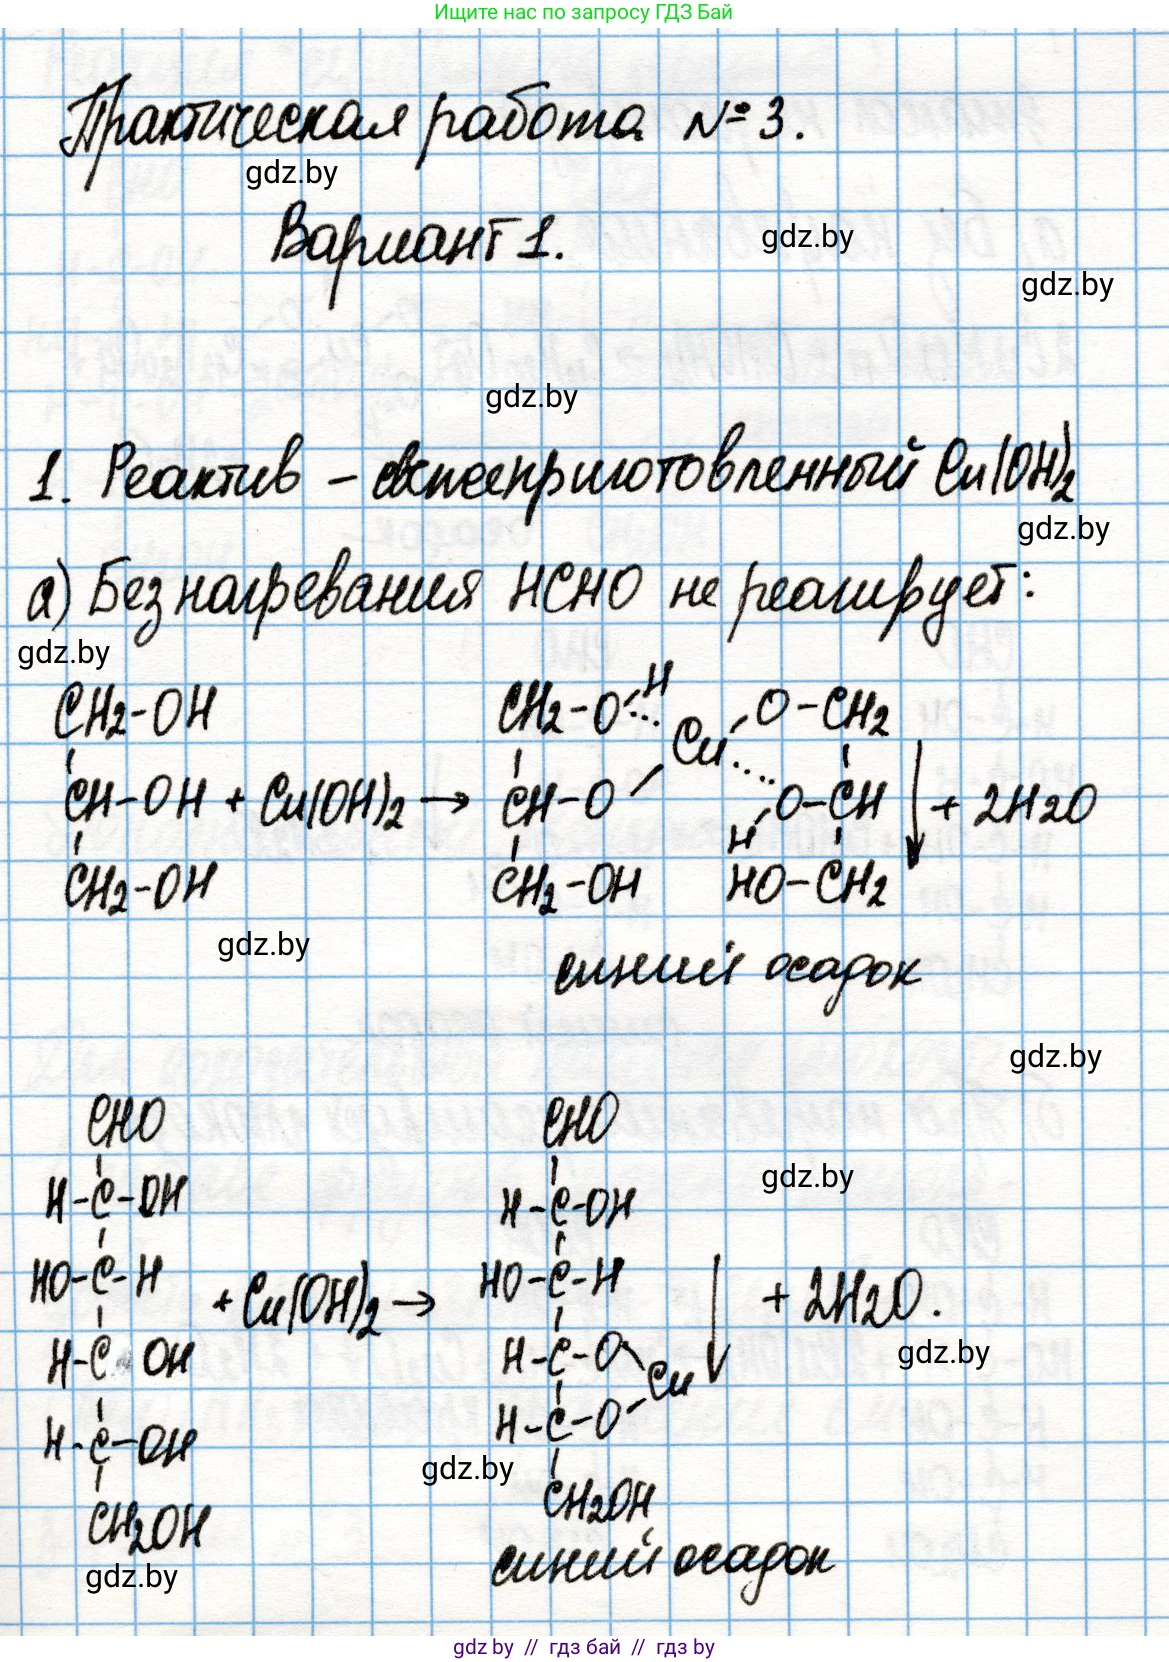 Ищите нас по запросу ГДЗ Бай
Практическая работа №3.
gdz.by
Вариант 1.
gdz.by
gdz.by
gdz.by
1. Реактив – свежеприготовленный Cu(OH)2
gdz.by
а) Без нагревания HCHO не реагирует:
gdz.by
CH2-OH CH2-O H O-CH2
Cu
CH-OH + Cu(OH)2 → CH-O O-CH ↓ + 2H2O
H
CH2-OH CH2-OH HO-CH2
gdz.by
синий осадок
gdz.by
CHO CHO
gdz.by
H-C-OH H-C-OH
HO-C-H HO-C-H
+ Cu(OH)2 → ↓ + 2H2O.
gdz.by
H-C OH H-C-O
Cu
H-C-OH H-C-O
gdz.by
CH2OH CH2OH
синий осадок
gdz.by
gdz by // гдз бай // gdz by